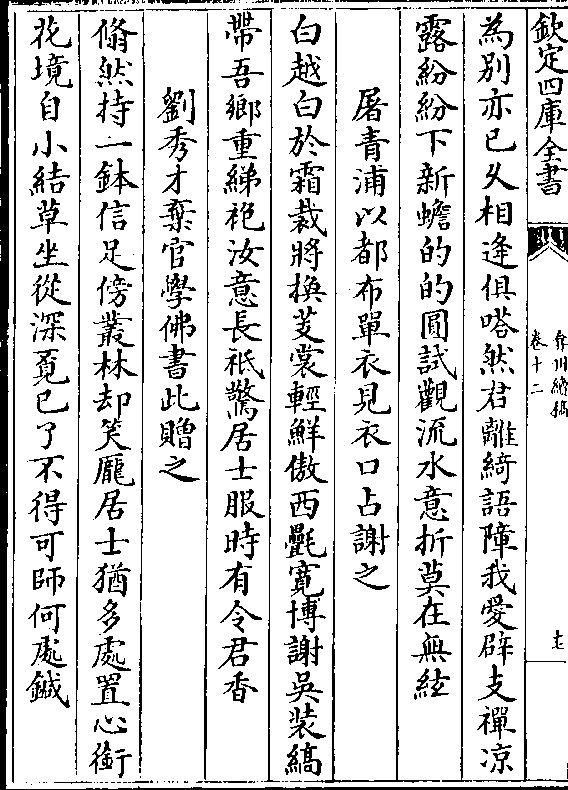 欽定四庫全書
弇州續稿
卷十二
十七
為别亦已久相逢俱嗒然君離綺語障我愛辟支禪凉
露紛紛下新蟾的的圓試觀流水意折莫在無絃
屠青浦以都布單衣見衣口占謝之
白越白於霜裁將換芰裳輕鮮傲西㲲寛博謝吳装縞
帶吾鄉重綈袍汝意長袛驚居士服時有令君香
劉秀才棄官學佛書此贈之
翛然持一鉢信足傍叢林却笑龎居士猶多處置心銜
花境自小結草坐從深覔已了不得可師何處鍼